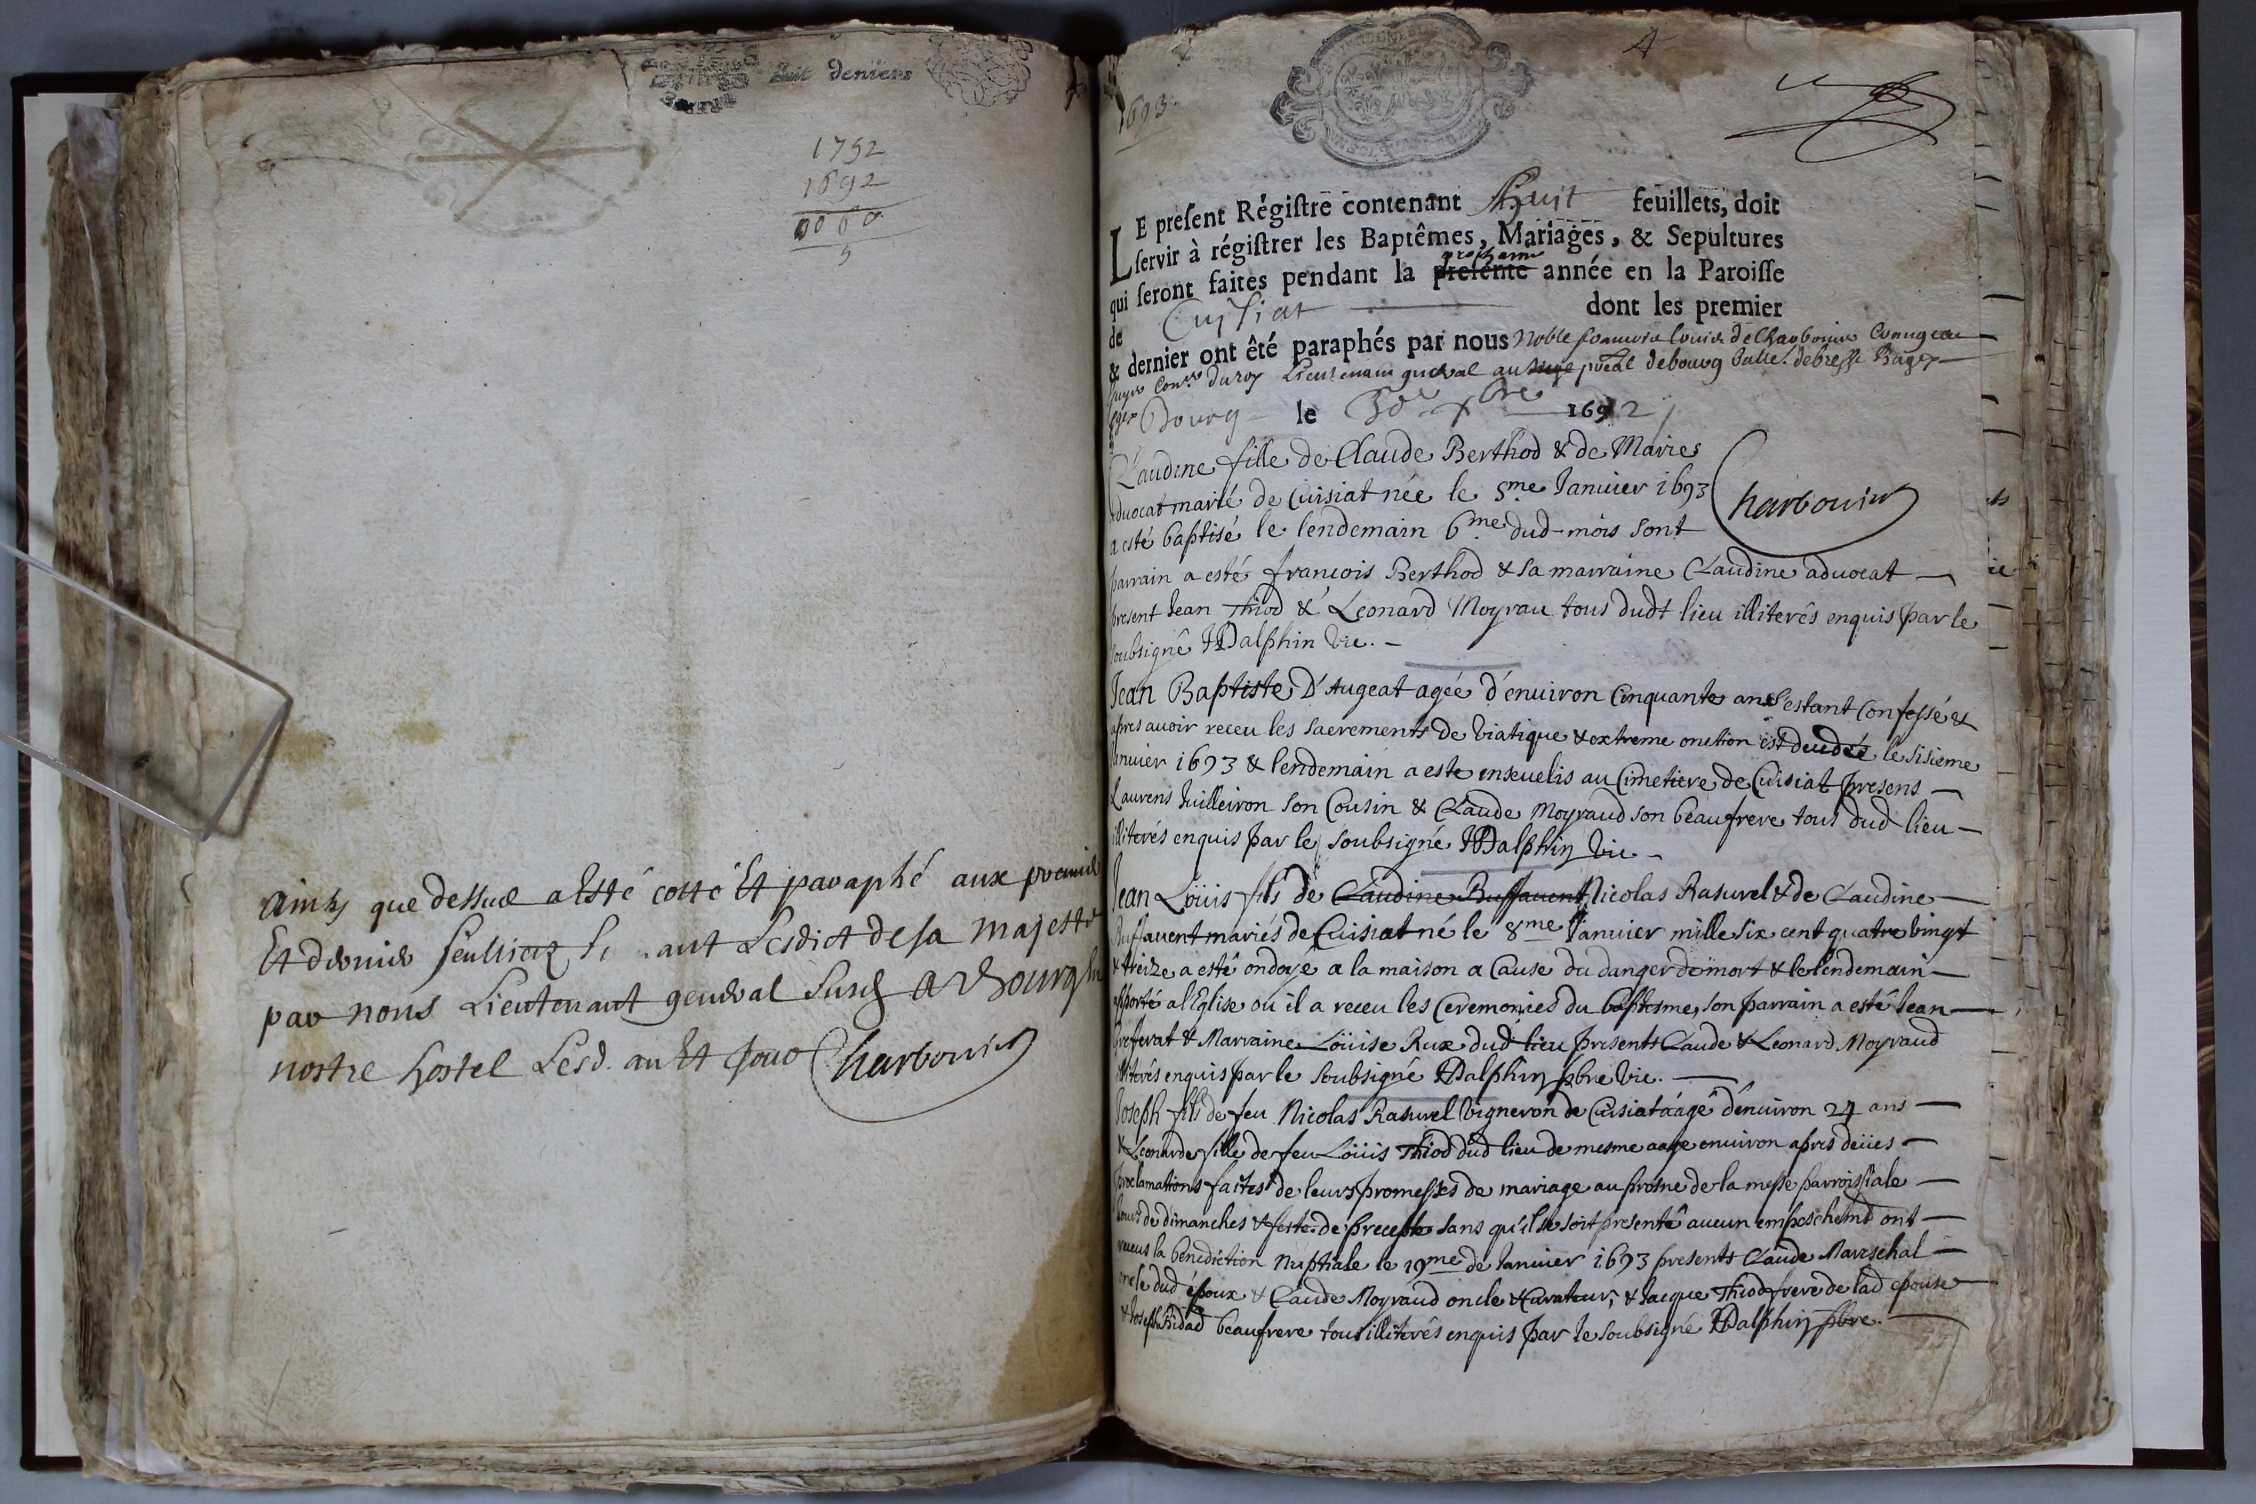 huit deniers
1752
1692
0060
Ainsy que dessus a Esté cotté Et paraphé aux premier
Et dernier feullietz suivant Lesdict de sa majesté
par nous Lieutenant general susd A Bourg en
nostre hostel Lesd. an Et jour Charbonnier
1693
LE present Régistre contenant huit feuillets, doit
servir à régistrer les Baptêmes, Mariages, & Sepultures
qui seront faites pendant la presente prochaine année en la Paroisse
de Cuysiat dont les premier
& dernier ont êté paraphés par nous Noble
du roy Lieutenant gneral au siege de bourg de bresse
Bourg le 1692
Claudine fille de Claude Berthod & de Marie
advocat mariés de Cuisiat née le 5me Janvier 1693
a esté baptisé le lendemain 6me dud mois sont
parrain a esté francois Berthod & sa marraine Claudine advocat
present Jean Thiod & Leonard Moyrau tous dudt lieu illiterés enquis par le
soubsigné Dalphin vic.
Charbonnier
Jean Baptiste D'Augeat agée d'environ Cinquante ans s'estant confessé &
apres avoir receu les sacrements de viatique & extreme onction est decedé le sisieme
Janvier 1693 & lendemain a este ensevelis au Cimetiere de Cuisiat presens
Laurens Juilleiron son Cousin & Claude Moyraud son beaufrere tous dud lieu
illiterés enquis par le soubsigné Dalphin vic
Jean Loüis fils de Claudine Buffavent Nicolas Rasurel & de Claudine
Buffavent mariés de Cuisiat né le 8me Janvier mille six cent quatre vingt
& treize a esté ondoyé a la maison a Cause du danger de mort & le lendemain
apporté a l'Eglise ou il a receu les Ceremonies du baptesme, son parrain a esté Jean
& Marraine Loüise Rux dud lieu presents Claude & Leonard Moyraud
illiterés enquis par le soubsigné Dalphin pbre vic.
Joseph fils de feu Nicolas Rasurel vigneron de Cuisiat aagé d'environ 24 ans
& Leonarde fille de feu Loüis Thiod dud lieu de mesme aage environ apres deües
proclamations faites de leurs promesses de mariage au prosne de la messe parroissiale
jours de dimanches & feste de precepte sans qu'il se soit presenté aucun empeschemt ont
receus la benediction Nuptiale le 19me de Janvier 1693 presents Claude Mareschal
oncle dud époux & Claude Moyraud oncle & Curateur, & Jacque Thiod frere de lad epouse
& Joseph beaufrere tous illiterés enquis par le soubsigné Dalphin pbre.